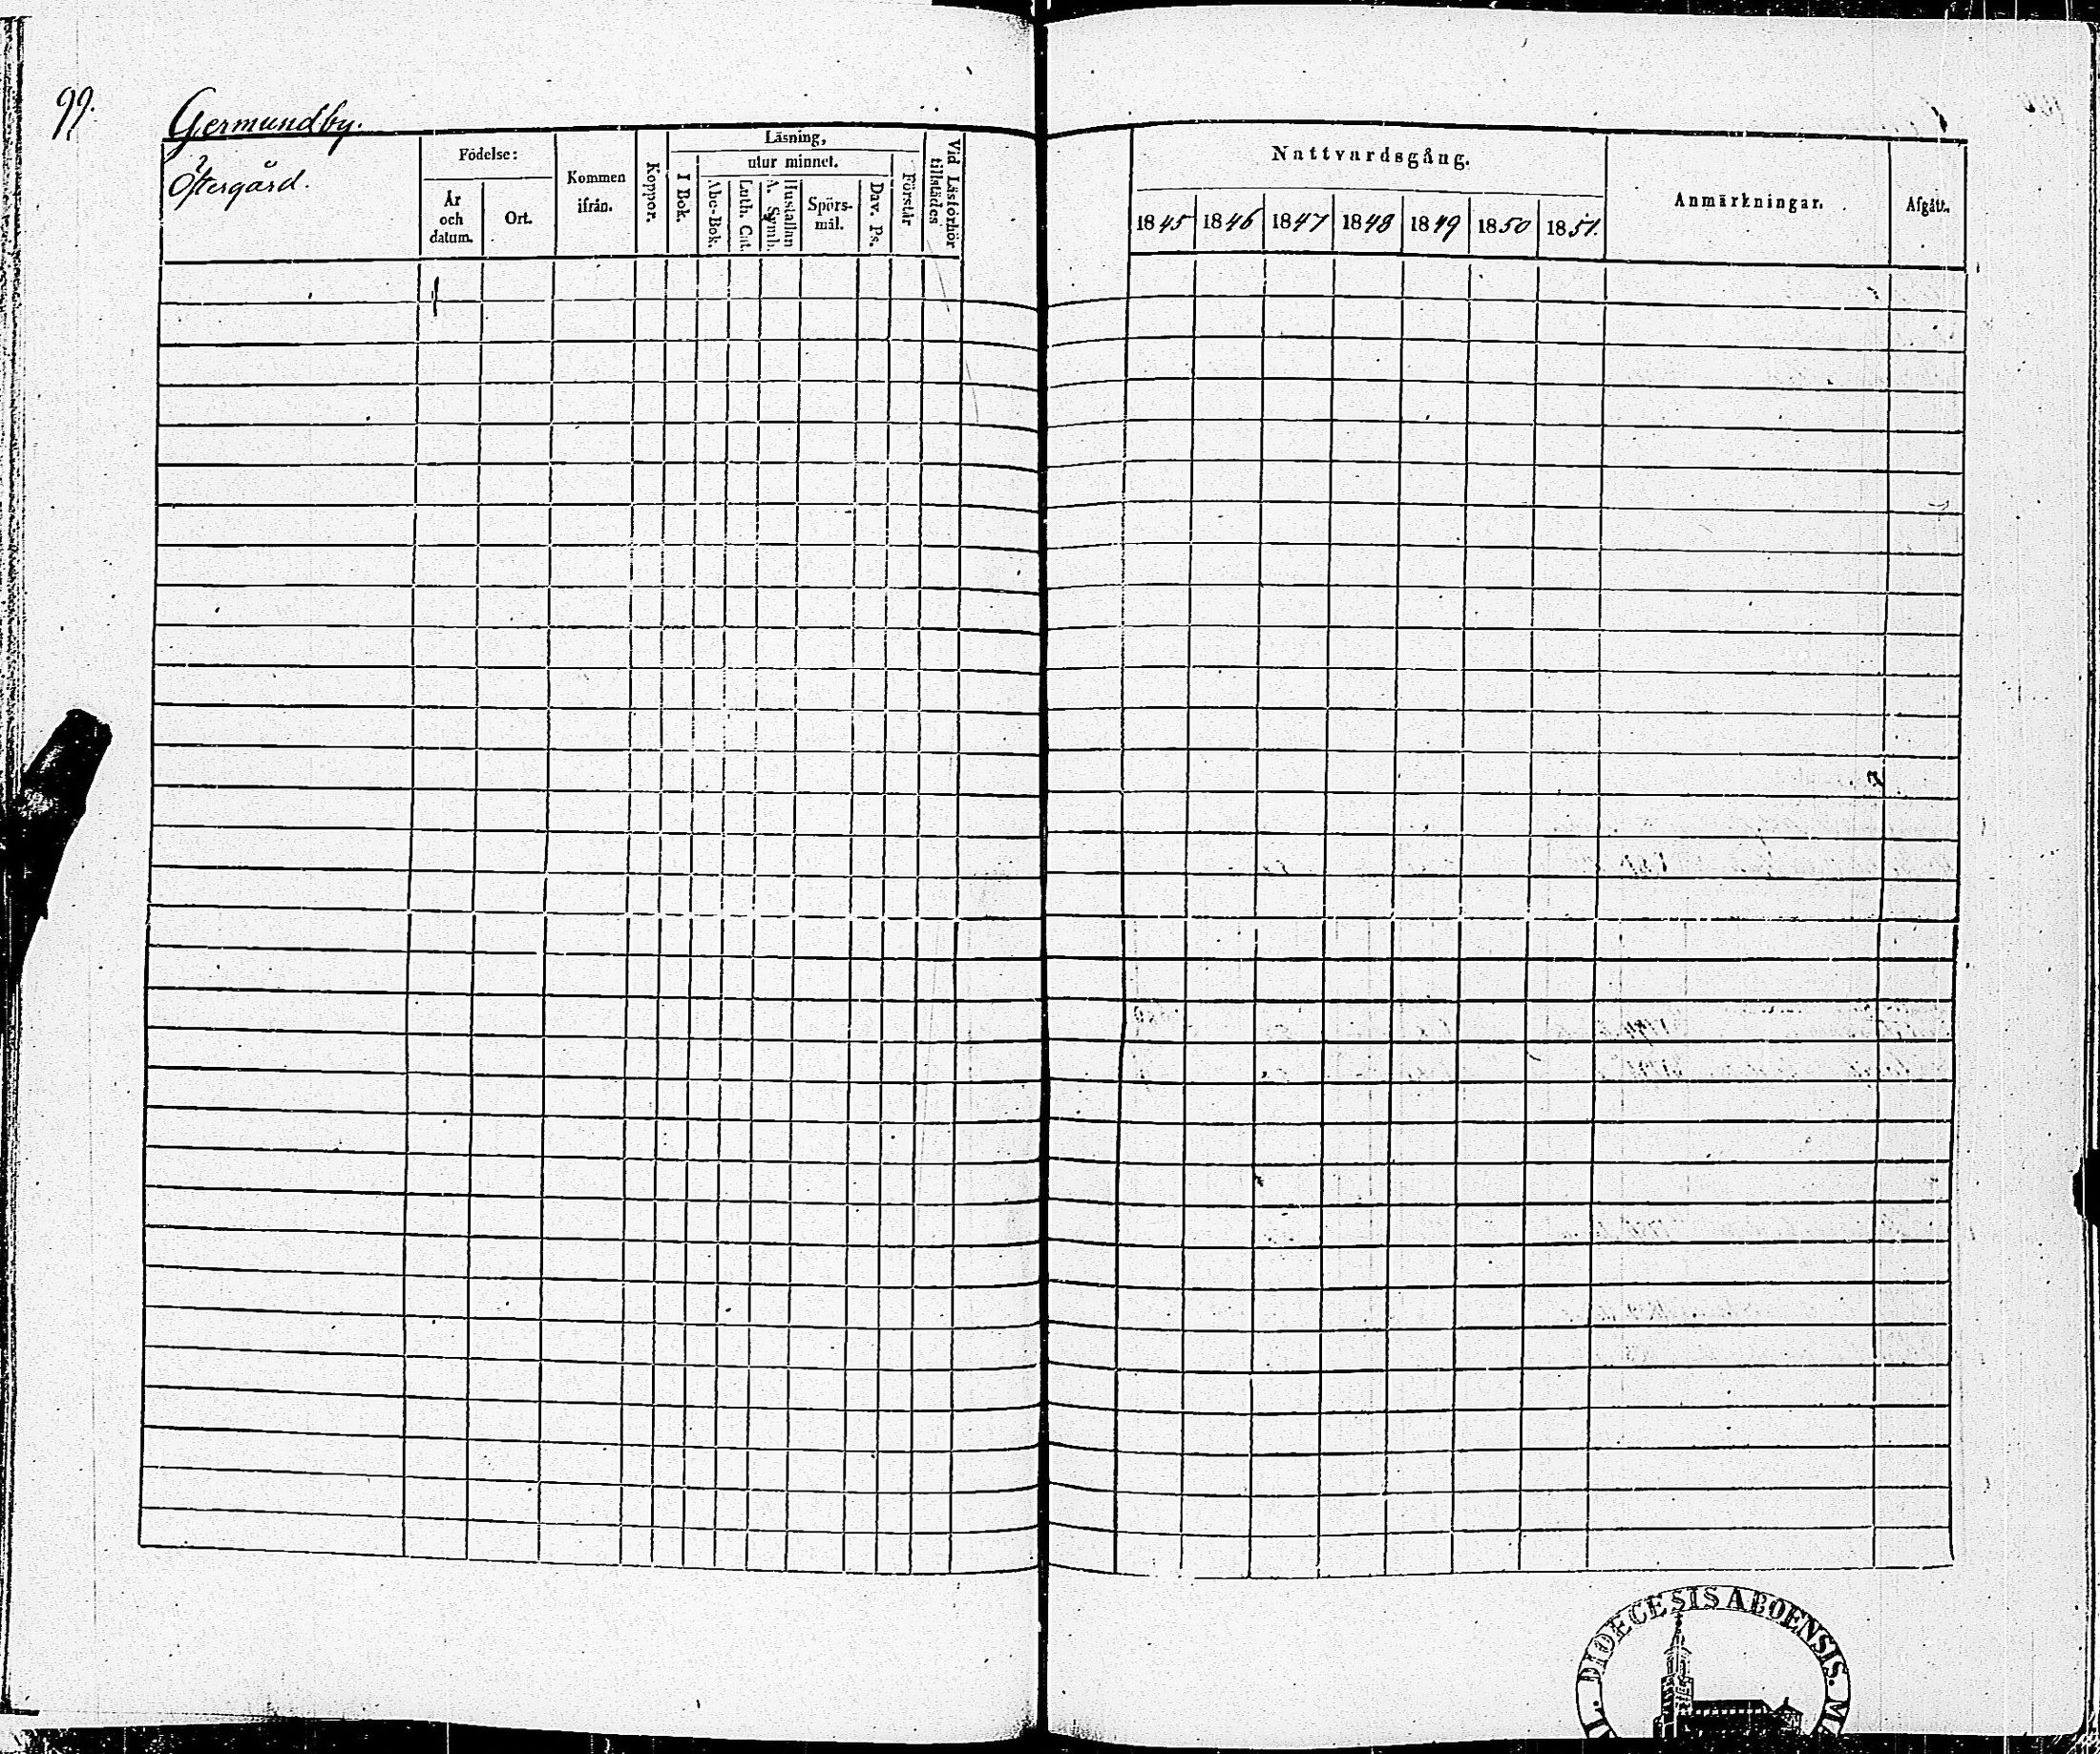 99.
Germundby.
Östergård.
Födelse:
År
och
datum.
Ort.
Kommen
ifrån.
Koppor.
Läsning,
I Bok.
utur minnet.
Abc-Bok.
Luth. Cat.
Hustaflan
A. Symb.
Spörs-
mål.
Dav. Ps.
Förstår
Vid Läsförhör
tillstädes
Nattvardsgång.
1845 1846 1847 1848 1849 1850 1851.
Anmärkningar.
Afgått.
DIOECESIS ABOENSIS. M